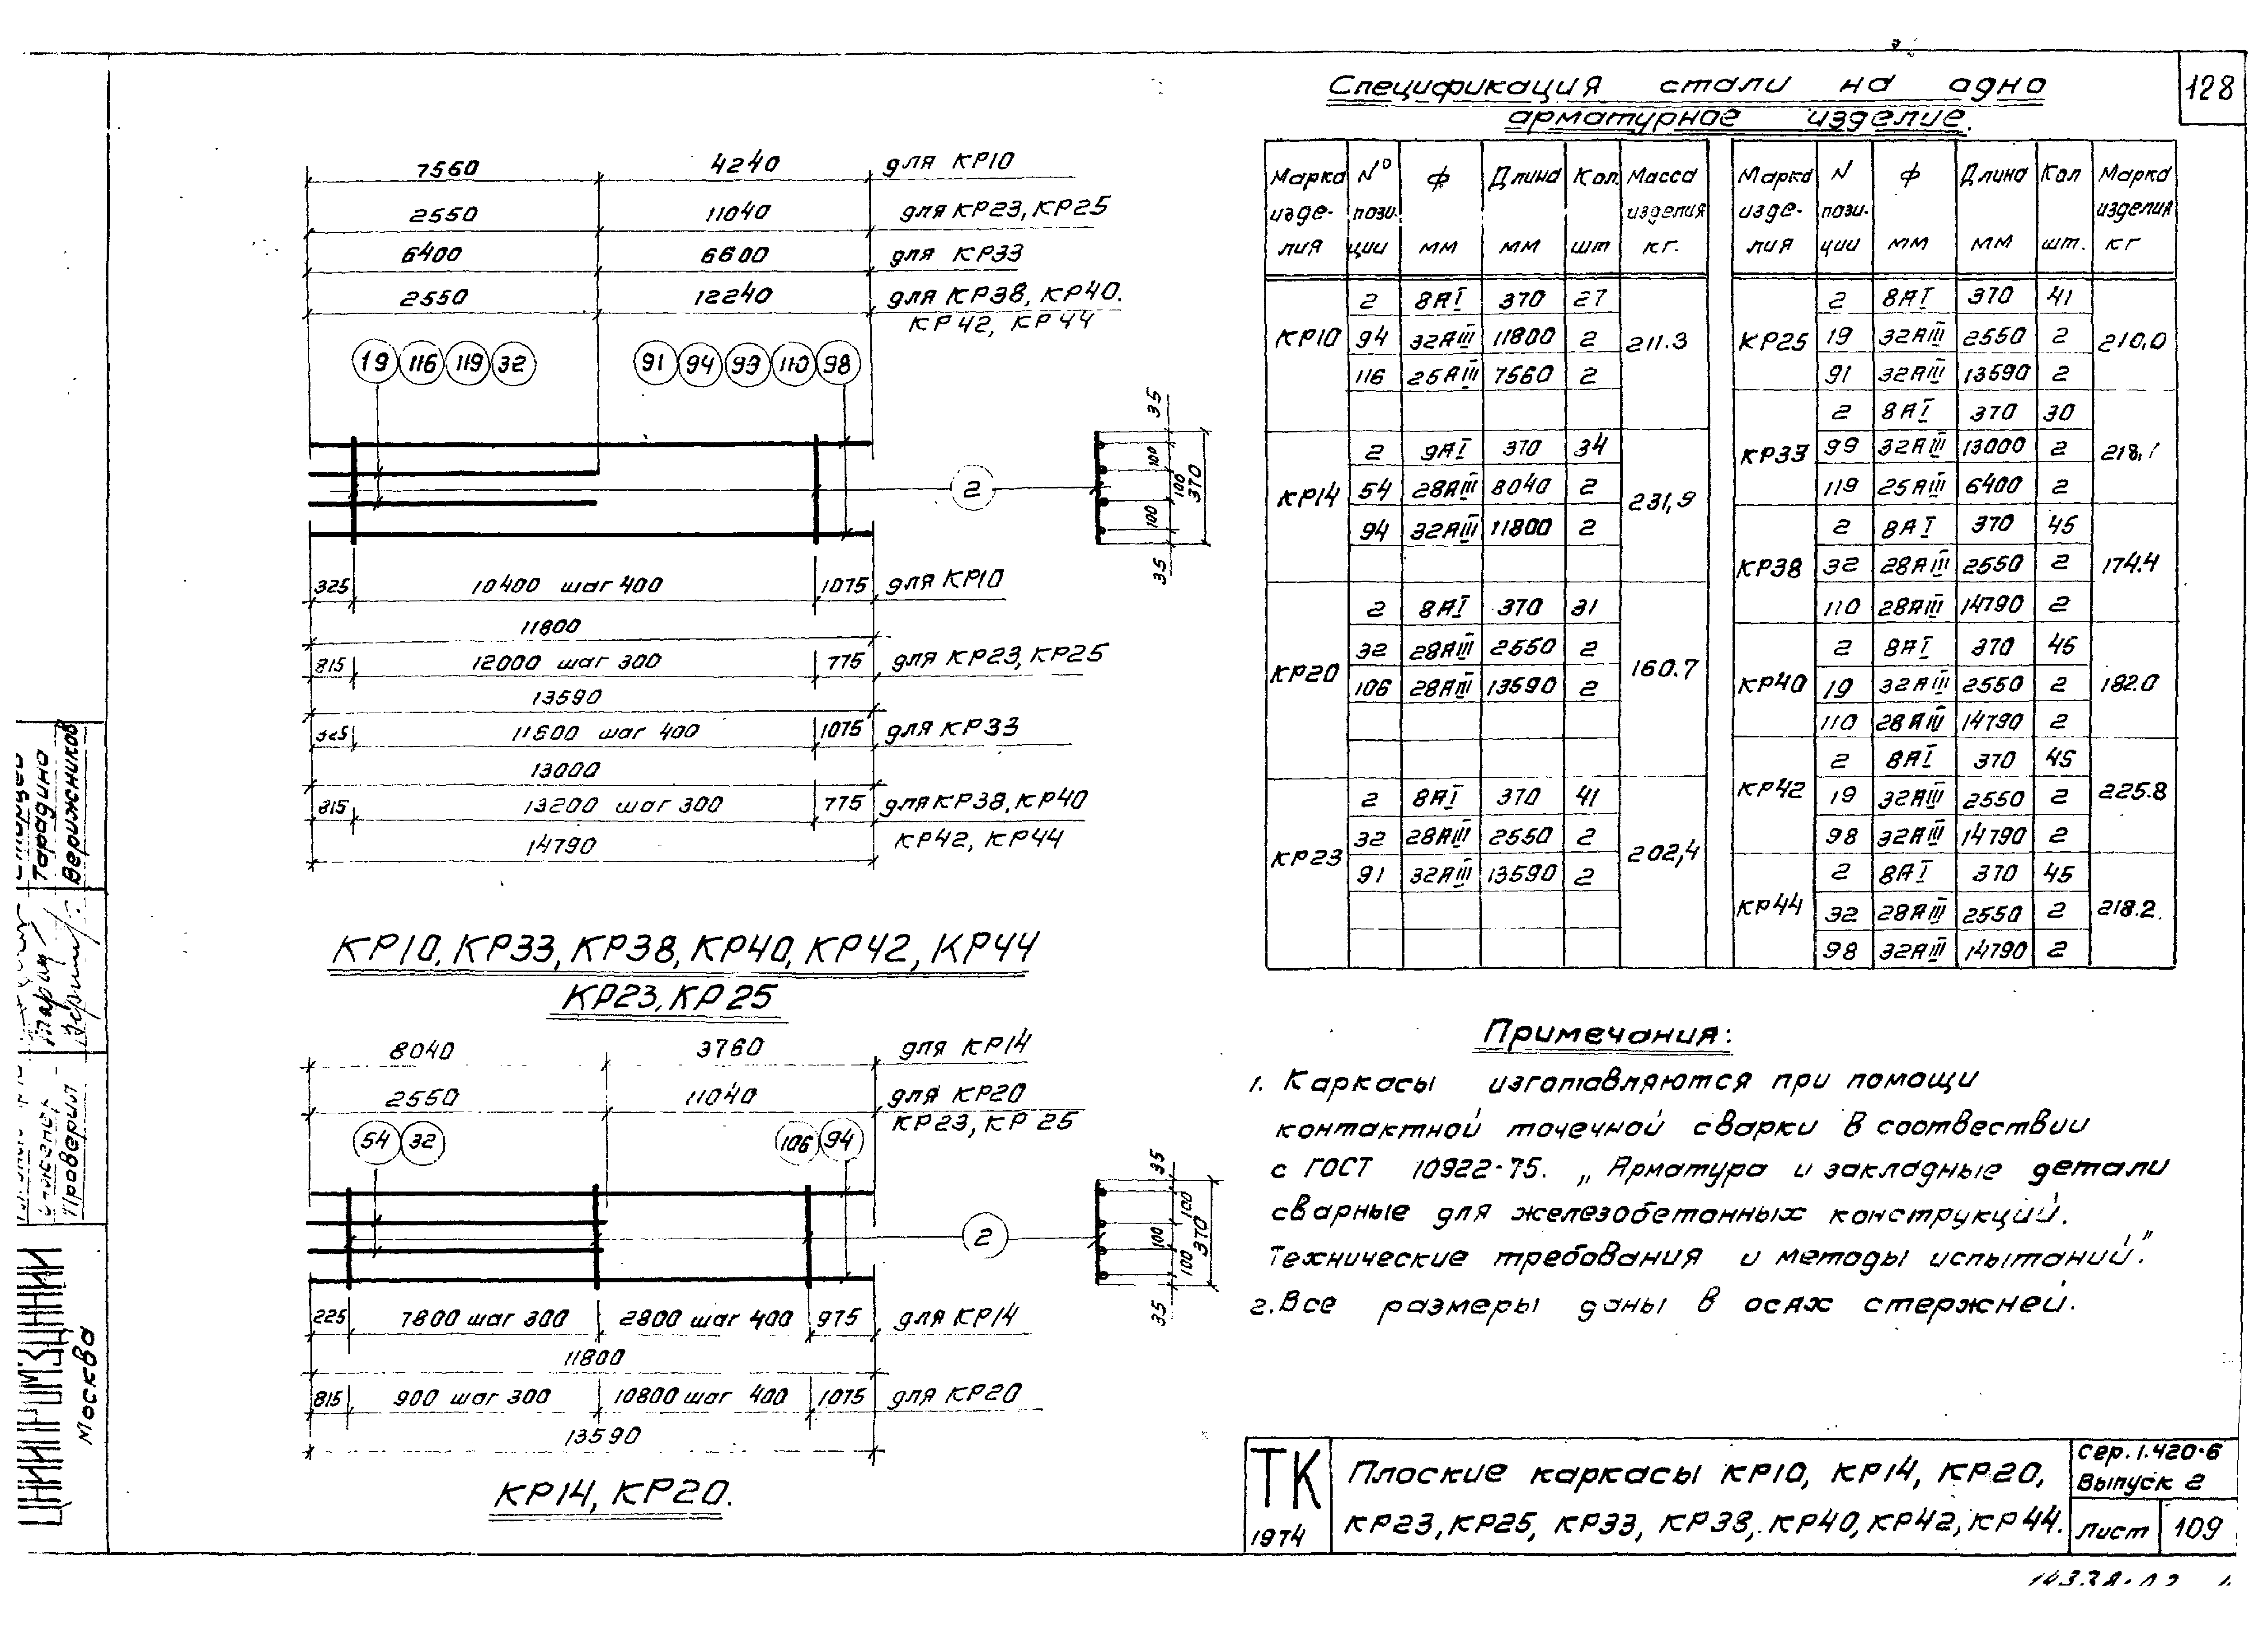 128
Спецификация стали на одно
арматурное изделие.
7560 4240 для КР10
2550 11040 для КР23, КР25
6400 6600 для КР33
2550 12240 для КР38, КР40.
КР42, КР44
19 116 119 32 91 94 99 110 98
2
35 100 100 100 35 370
325 10400 шаг 400 1075 для КР10
11800
815 12000 шаг 300 775 для КР23, КР25
13590
325 11600 шаг 400 1075 для КР33
13000
815 13200 шаг 300 775 для КР38, КР40
КР42, КР44
14790
КР10, КР33, КР38, КР40, КР42, КР44
КР23, КР25
8040 3760 для КР14
2550 11040 для КР20
КР23, КР25
54 32 106 94
2
35 100 100 100 35 370
225 7800 шаг 300 2800 шаг 400 975 для КР14
11800
815 900 шаг 300 10800 шаг 400 1075 для КР20
13590
КР14, КР20.
Марка изде- лия N° пози- ции ф мм Длина мм Кол. шт Масса изделия кг.
КР10 211.3
2 8АI 370 27
94 32АIII 11800 2
116 25АIII 7560 2
КР14 231,9
2 9АI 370 34
54 28АIII 8040 2
94 32АIII 11800 2
КР20 160.7
2 8АI 370 31
32 28АIII 2550 2
106 28АIII 13590 2
КР23 202,4
2 8АI 370 41
32 28АIII 2550 2
91 32АIII 13590 2
Марка изде- лия N пози- ции ф мм Длина мм Кол шт. Марка изделия кг
КР25 210,0
2 8АI 370 41
19 32АIII 2550 2
91 32АIII 13590 2
КР33 218,1
2 8АI 370 30
99 32АIII 13000 2
119 25АIII 6400 2
КР38 174.4
2 8АI 370 45
32 28АIII 2550 2
110 28АIII 14790 2
КР40 182.0
2 8АI 370 45
19 32АIII 2550 2
110 28АIII 14790 2
КР42 225.8
2 8АI 370 45
19 32АIII 2550 2
98 32АIII 14790 2
КР44 218.2
2 8АI 370 45
32 28АIII 2550 2
98 32АIII 14790 2
Примечания:
1. Каркасы изготавляются при помощи
контактной точечной сварки в соотвествии
с ГОСТ 10922-75. „Арматура и закладные детали
сварные для железобетонных конструкций.
Технические требования и методы испытаний."
2. Все размеры даны в осях стержней.
ТК
1974
Плоские каркасы КР10, КР14, КР20,
КР23, КР25, КР33, КР38, КР40, КР42, КР44.
Сер. 1.420-6
Выпуск 2
Лист 109
Тарадино
Верижников
Проверил
Москва